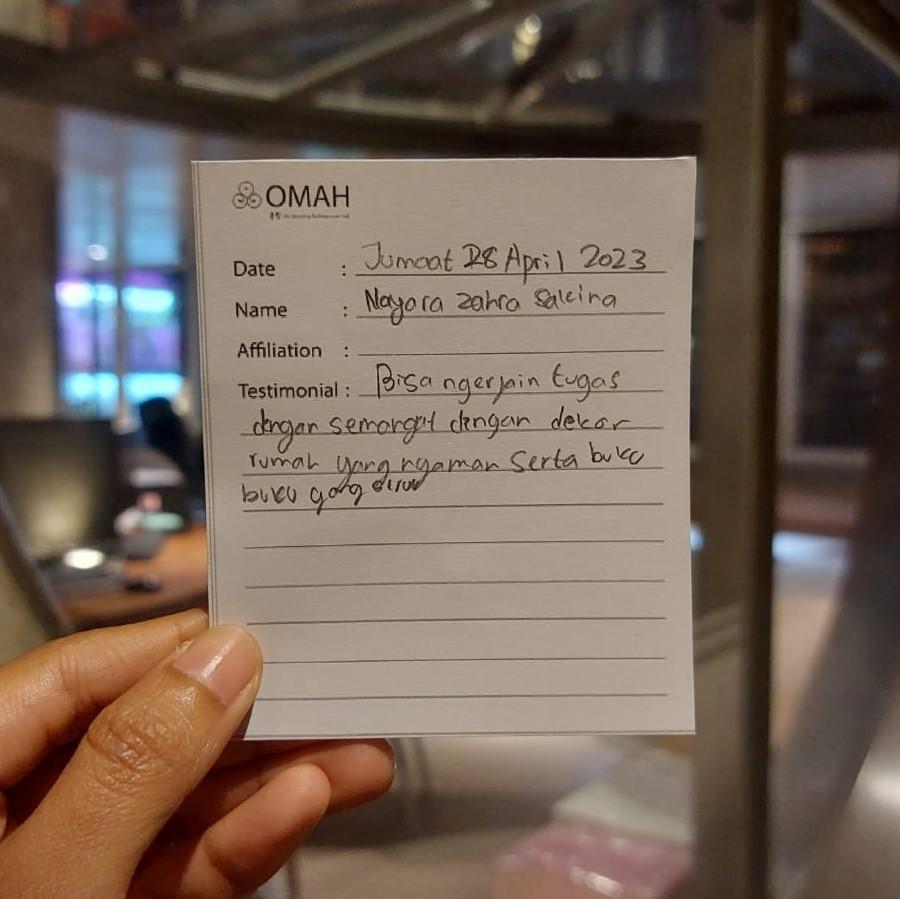 OMAH
Date : Jumaat 28 April 2023
Name : Nayara zahra Salcina
Affiliation :
Testimonial : Bisa ngerjain tugas
dengan semangat dengan dekor
rumah yang nyaman Serta buku
buku yang